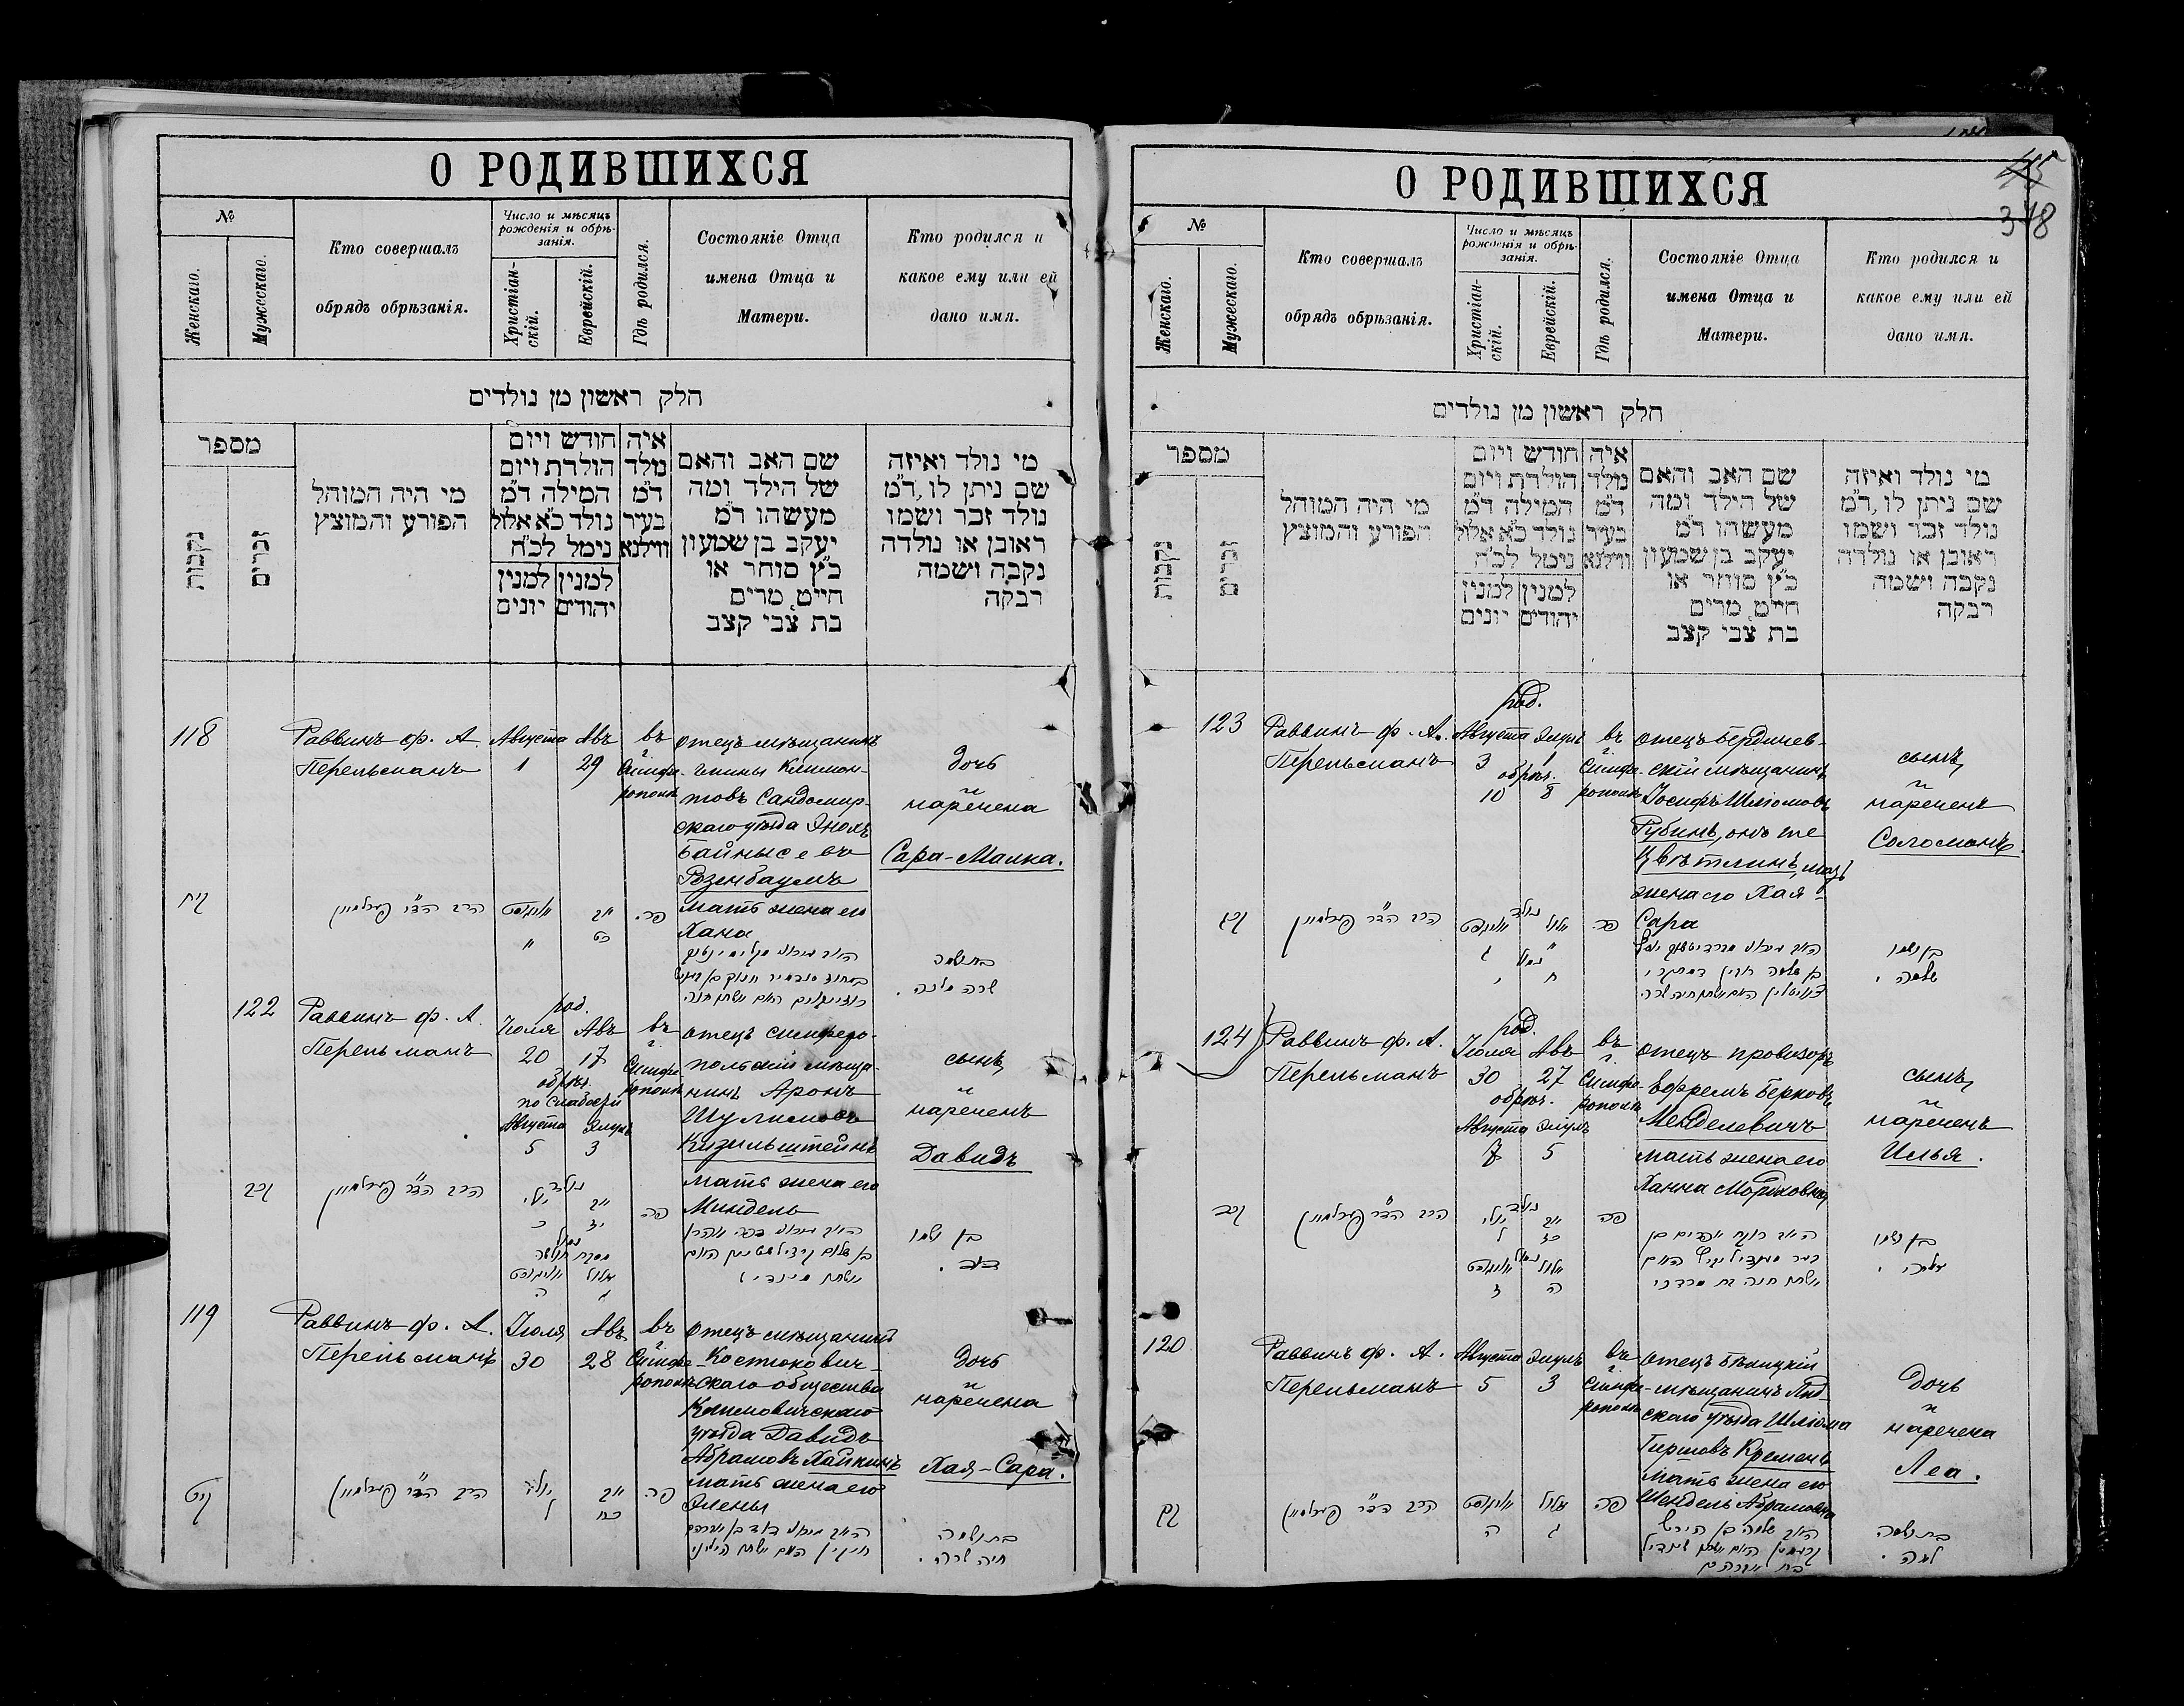 О РОДИВШИХСЯ
№
Женскаго.
Мужескаго.
Кто совершалъ
обрядъ обрѣзанія.
Число и мѣсяцъ
рожденія и обрѣ-
занія.
Христіан-
скій.
Еврейскій.
Гдѣ родился.
Состояніе Отца
имена Отца и
Матери.
Кто родился и
какое ему или ей
дано имя.
חלק ראשון מן נולדים
מספר
נקבות
זכרים
מי היה המוהל
הפורע והמוצץ
חודש ויום
הולדת ויום
המילה ד״מ
נולד כ״א אלול
נימל לכ״ח
למנין למנין
יהודים יונים
איה
נולד
ד״מ
בעיר
ווילנא
שם האב והאם
של הילד ומה
מעשהו ד״מ
יעקב בן שמעון
כ״ץ סוחר או
חייט מרים
בת צבי קצב
מי נולד ואיזה
שם ניתן לו, ד״מ
נולד זכר ושמו
ראובן או נולדה
נקבה ושמה
רבקה
118
Раввинъ ф. А.
Перельманъ
Августа Авъ
1 29
въ
г.
Симфе-
рополѣ
отецъ мѣщанинъ
гмины Климон-
товъ Сандомир-
скаго уѣзда Энохъ
Байнысевъ
Розенбаумъ
мать жена его
Хана
дочь
и
наречена
Сара-Малка.
קיח
הרב הד״ר פערלמאן
אויגוסט אב
כט
פה
בת ושמה
שרה מלכה.
122
Раввинъ ф. А.
Перельманъ
род.
Іюля Авъ
20 17
обрѣз.
по слабости
Августа Элулъ
5 3
въ
г.
Симфе-
рополѣ
отецъ симферо-
польскій мѣща-
нинъ Аронъ
Шулимовъ
Кизильштейнъ
мать жена его
Миндель
сынъ
и
нареченъ
Давидъ
קכב
הרב הד״ר פערלמאן
נולד
יולי אב
כ יז
נמול
מסבת חולשה
אויגוסט אלול
ה ג
פה
בן ושמו
דוד.
119
Раввинъ ф. А.
Перельманъ
Іюля Авъ
30 28
въ
г.
Симфе-
рополѣ
отецъ мѣщанинъ
Костюкович-
скаго общества
Климовичскаго
уѣзда Давидъ
Абрамовъ Хайкинъ
мать жена его
Элены
дочь
и
наречена
Хая-Сара.
קיט
הרב הד״ר פערלמאן
יולי אב
ל כח
פה
בת ושמה
חיה שרה.
О РОДИВШИХСЯ
348
№
Женскаго.
Мужескаго.
Кто совершалъ
обрядъ обрѣзанія.
Число и мѣсяцъ
рожденія и обрѣ-
занія.
Христіан-
скій.
Еврейскій.
Гдѣ родился.
Состояніе Отца
имена Отца и
Матери.
Кто родился и
какое ему или ей
дано имя.
חלק ראשון מן נולדים
מספר
נקבות
זכרים
מי היה המוהל
הפורע והמוצץ
חודש ויום
הולדת ויום
המילה ד״מ
נולד כ״א אלול
נימל לכ״ח
למנין למנין
יהודים יונים
איה
נולד
ד״מ
בעיר
ווילנא
שם האב והאם
של הילד ומה
מעשהו ד״מ
יעקב בן שמעון
כ״ץ סוחר או
חייט מרים
בת צבי קצב
מי נולד ואיזה
שם ניתן לו, ד״מ
נולד זכר ושמו
ראובן או נולדה
נקבה ושמה
רבקה
123
Раввинъ ф. А.
Перельманъ
род.
Августа Элулъ
3 1
обрѣз.
10 8
въ
г.
Симфе-
рополѣ
отецъ Бердичев-
скій мѣщанинъ
Іосифъ Шлiомовъ
Рубинъ, онъ же
Цвѣтлинъ, мать
жена его Хая-
Сара
сынъ
и
нареченъ
Соломонъ.
קכג
הרב הד״ר פערלמאן
נולד
אויגוסט אלול
פה
בן ושמו
שלמה.
124
Раввинъ ф. А.
Перельманъ
род.
Іюля Авъ
30 27
обрѣз.
Августа Элулъ
7 5
въ
г.
Симфе-
рополѣ
отецъ провизоръ
Ефремъ Берковъ
Менделевичъ
мать жена его
Ханна Мордховна
сынъ
и
нареченъ
Илья.
הרב הד״ר פערלמאן
נולד
יולי אב
ל כז
נמול
אויגוסט אלול
ז ה
פה
בן ושמו
אליהו.
120
Раввинъ ф. А.
Перельманъ
Августа Элулъ
5 3
въ
г.
Симфе-
рополѣ
отецъ Бѣлицкій
мѣщанинъ Лид-
скаго уѣзда Шлiома
Гиршовъ Кремень
мать жена его
Шендель Абрамовна
дочь
и
наречена
Леа.
קכ
הרב הד״ר פערלמאן
אויגוסט אלול
ה ג
פה
בת אברהם
בת ושמה
לאה.